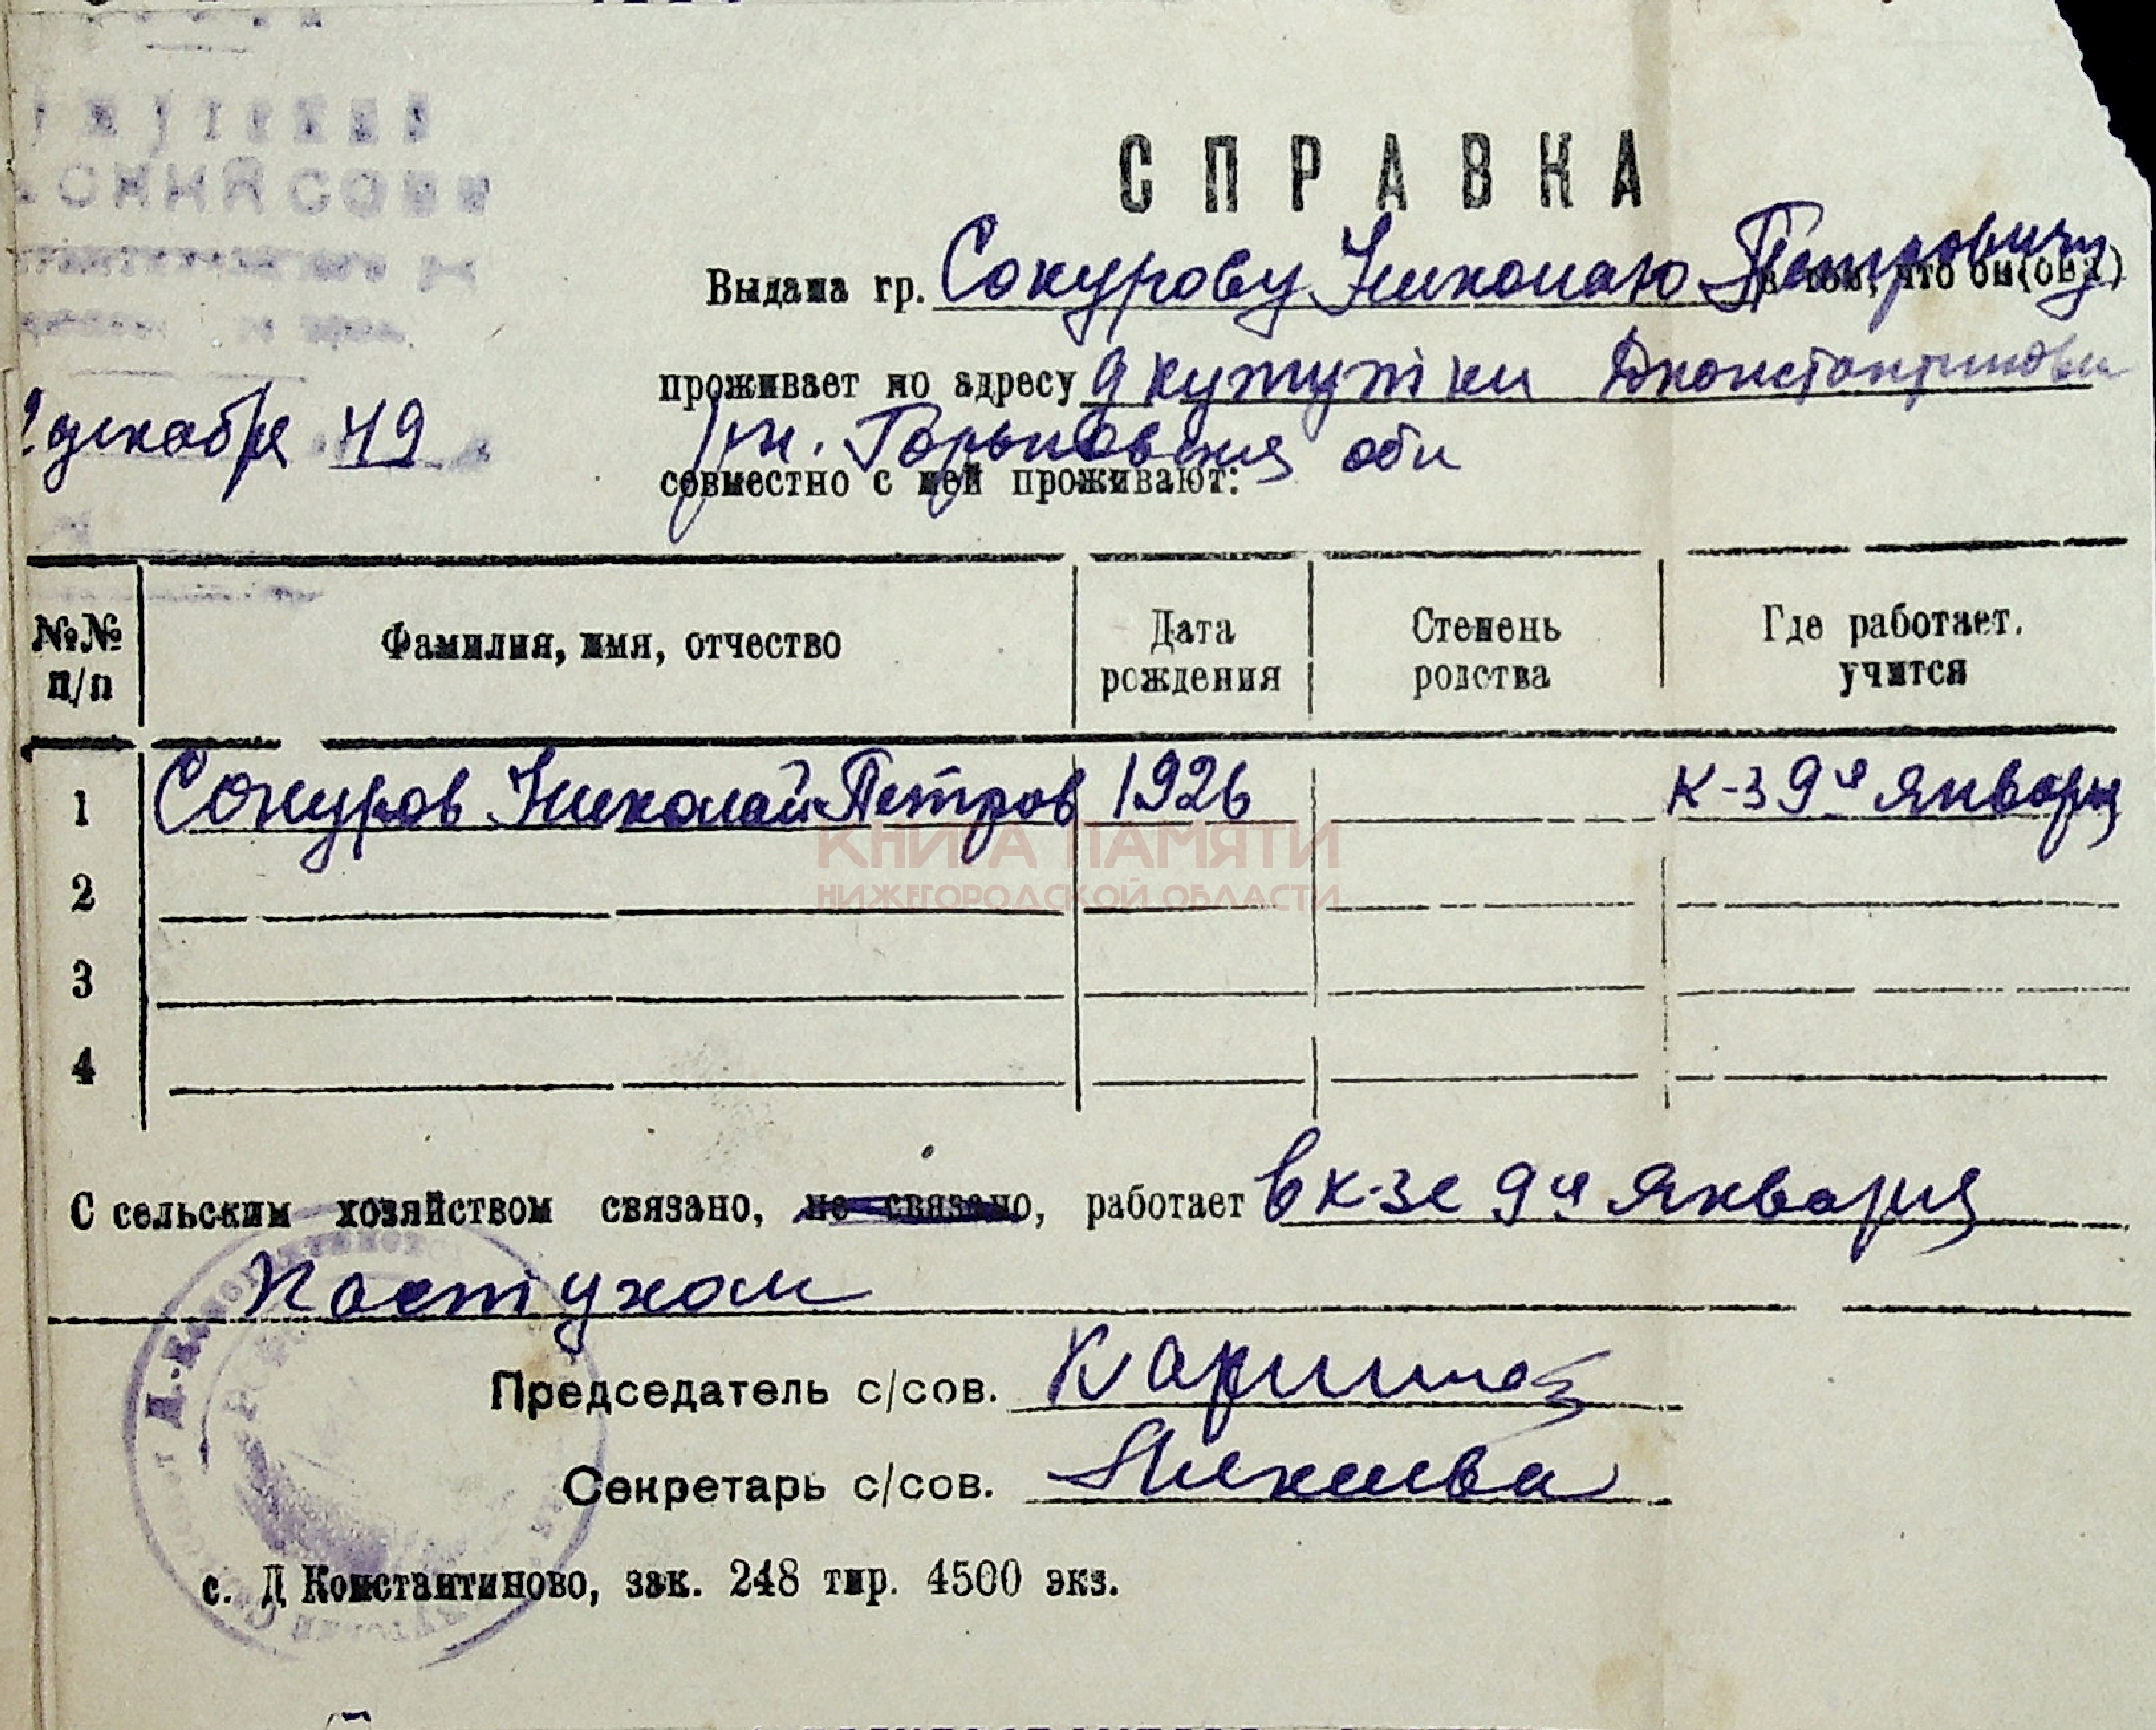 СПРАВКА
Выдана гр. Сокурову Николаю Петровичу в том, что он(она)
проживает по адресу д Кутутки Дконстантиновск
декабря 49
рн. Горьковская обл
совместно с ней проживают:
№№ п/п Фамилия, имя, отчество Дата рождения Степень родства Где работает. учится
1 Сокуров Николай Петров 1926 к-з 9ое Января
КНИГА ПАМЯТИ
НИЖЕГОРОДСКОЙ ОБЛАСТИ
2
3
4
С сельским хозяйством связано, не связано, работает в к-зе 9ое Января
Пастухом
Председатель с/сов.
Секретарь с/сов.
с. Д Константиново, зак. 248 тир. 4500 экз.